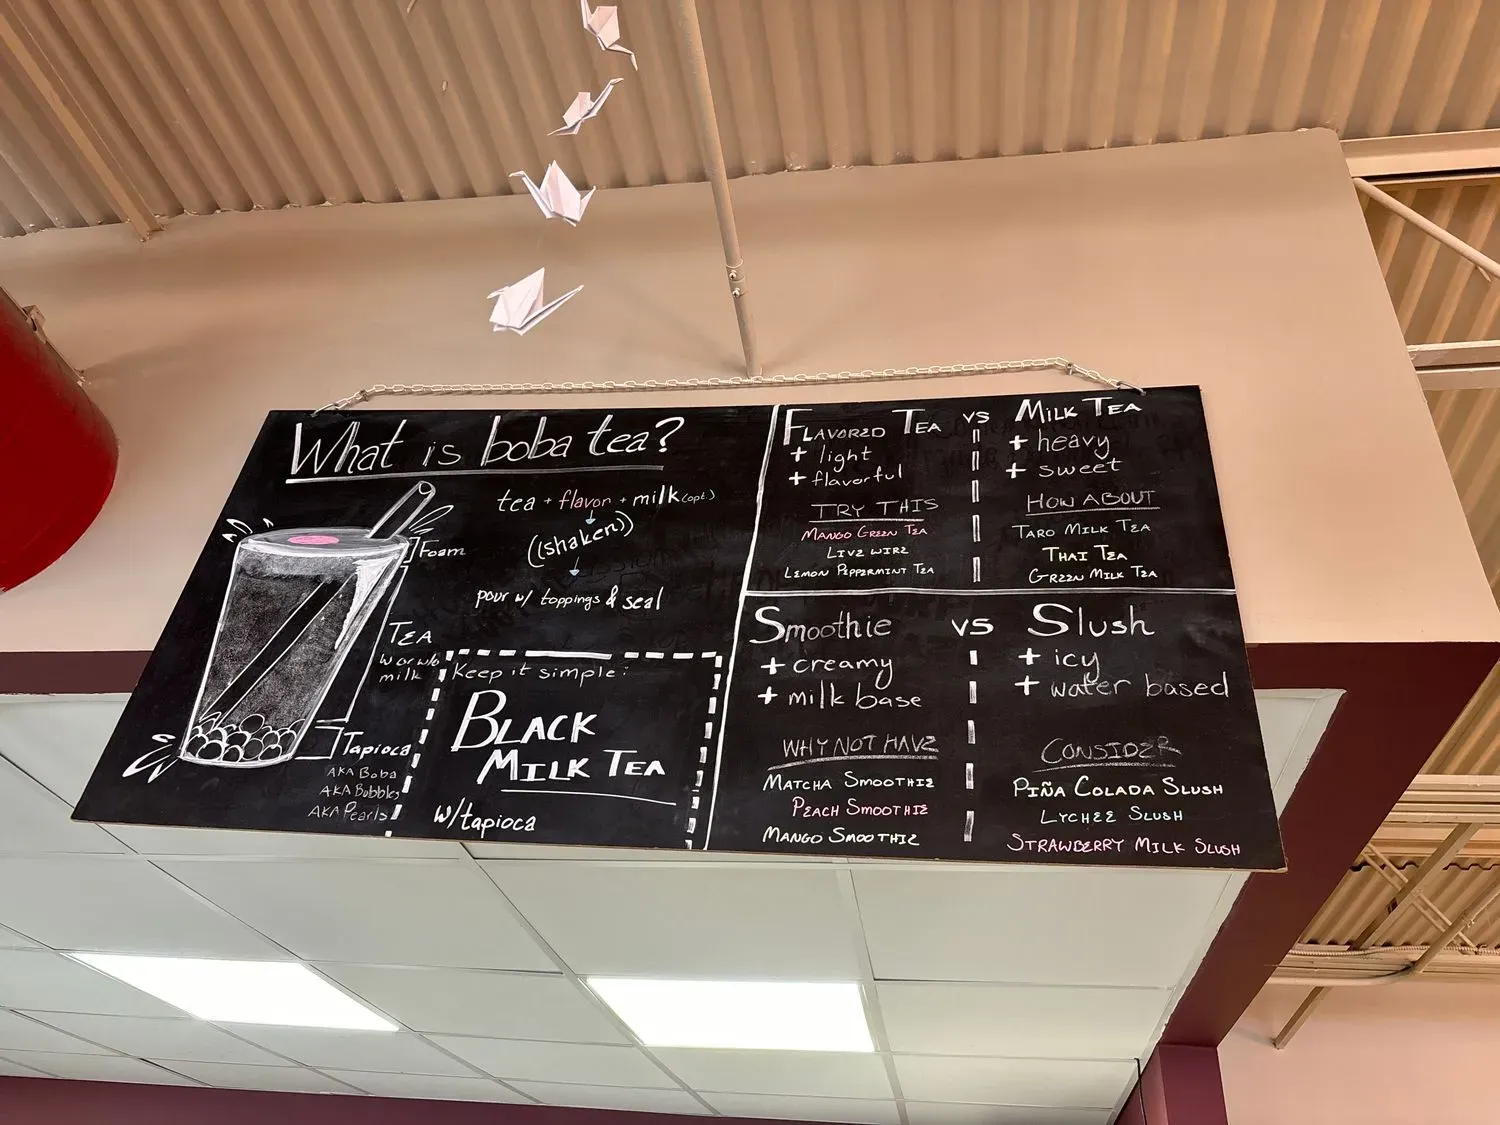 What is boba tea?
tea + flavor + milk (opt.)
((shaken))
pour w/ toppings & seal
Foam
TEA
w or w/o
milk
Tapioca
AKA Boba
AKA Bobbles
AKA Pearls
Keep it simple:
BLACK
MILK TEA
w/tapioca
FLAVORED TEA vs MILK TEA
+ light
+ flavorful
TRY THIS
MANGO GREEN TEA
LIVE WIRE
LEMON PEPPERMINT TEA
+ heavy
+ sweet
HOW ABOUT
TARO MILK TEA
THAI TEA
GREEN MILK TEA
Smoothie vs Slush
+ creamy
+ milk base
WHY NOT HAVE
MATCHA SMOOTHIE
PEACH SMOOTHIE
MANGO SMOOTHIE
+ icy
+ water based
CONSIDER
PIÑA COLADA SLUSH
LYCHEE SLUSH
STRAWBERRY MILK SLUSH